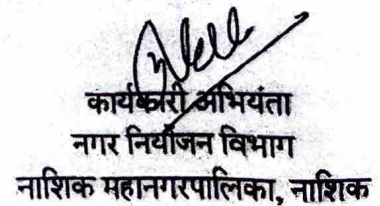 कार्यकारी अभियंता
नगर नियोजन विभाग
नाशिक महानगरपालिका, नाशिक